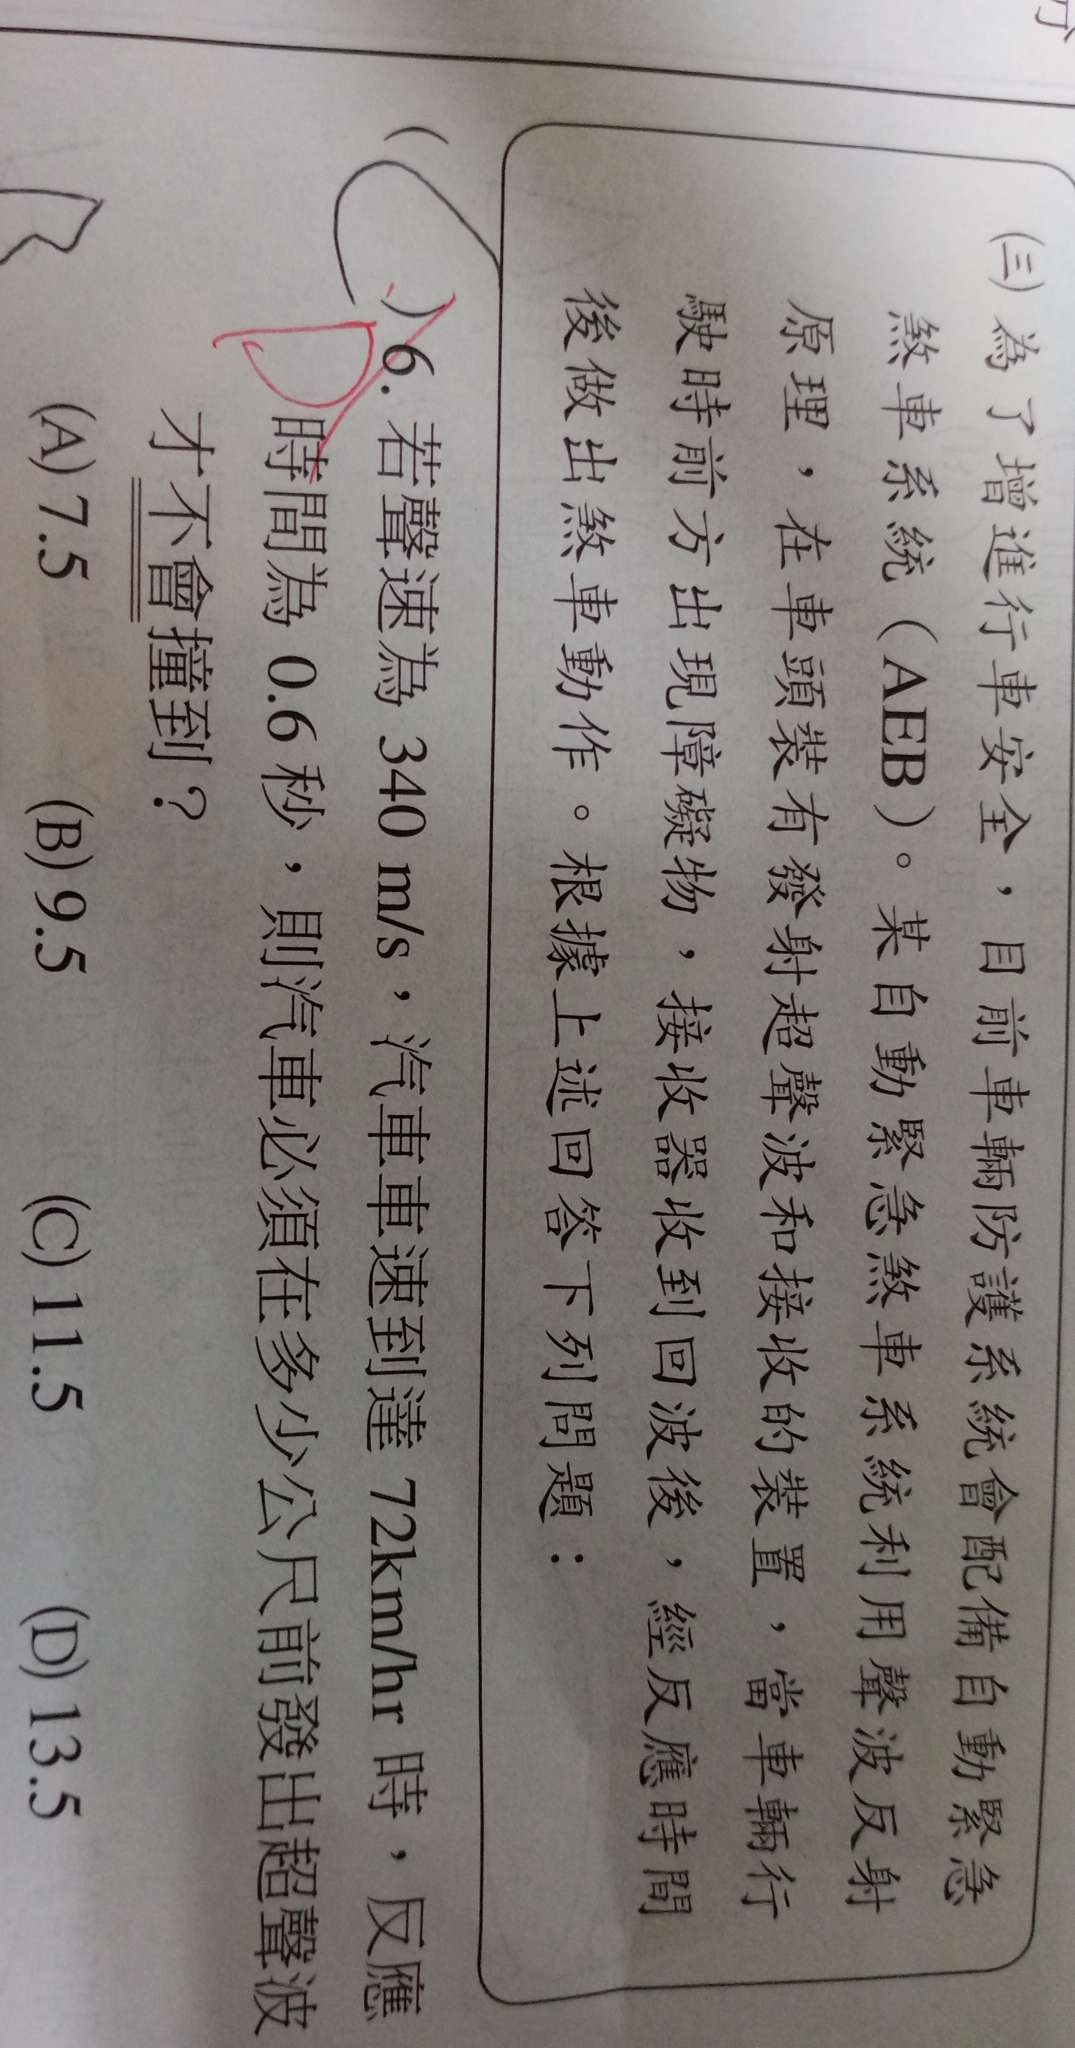 (三) 為了增進行車安全，目前車輛防護系統會配備自動緊急
煞車系統（AEB）。某自動緊急煞車系統利用聲波反射
原理，在車頭裝有發射超聲波和接收的裝置，當車輛行
駛時前方出現障礙物，接收器收到回波後，經反應時間
後做出煞車動作。根據上述回答下列問題：
( C ) 6. 若聲速為 340 m/s，汽車車速到達 72km/hr 時，反應
D
時間為 0.6 秒，則汽車必須在多少公尺前發出超聲波
才不會撞到？
(A) 7.5 (B) 9.5 (C) 11.5 (D) 13.5